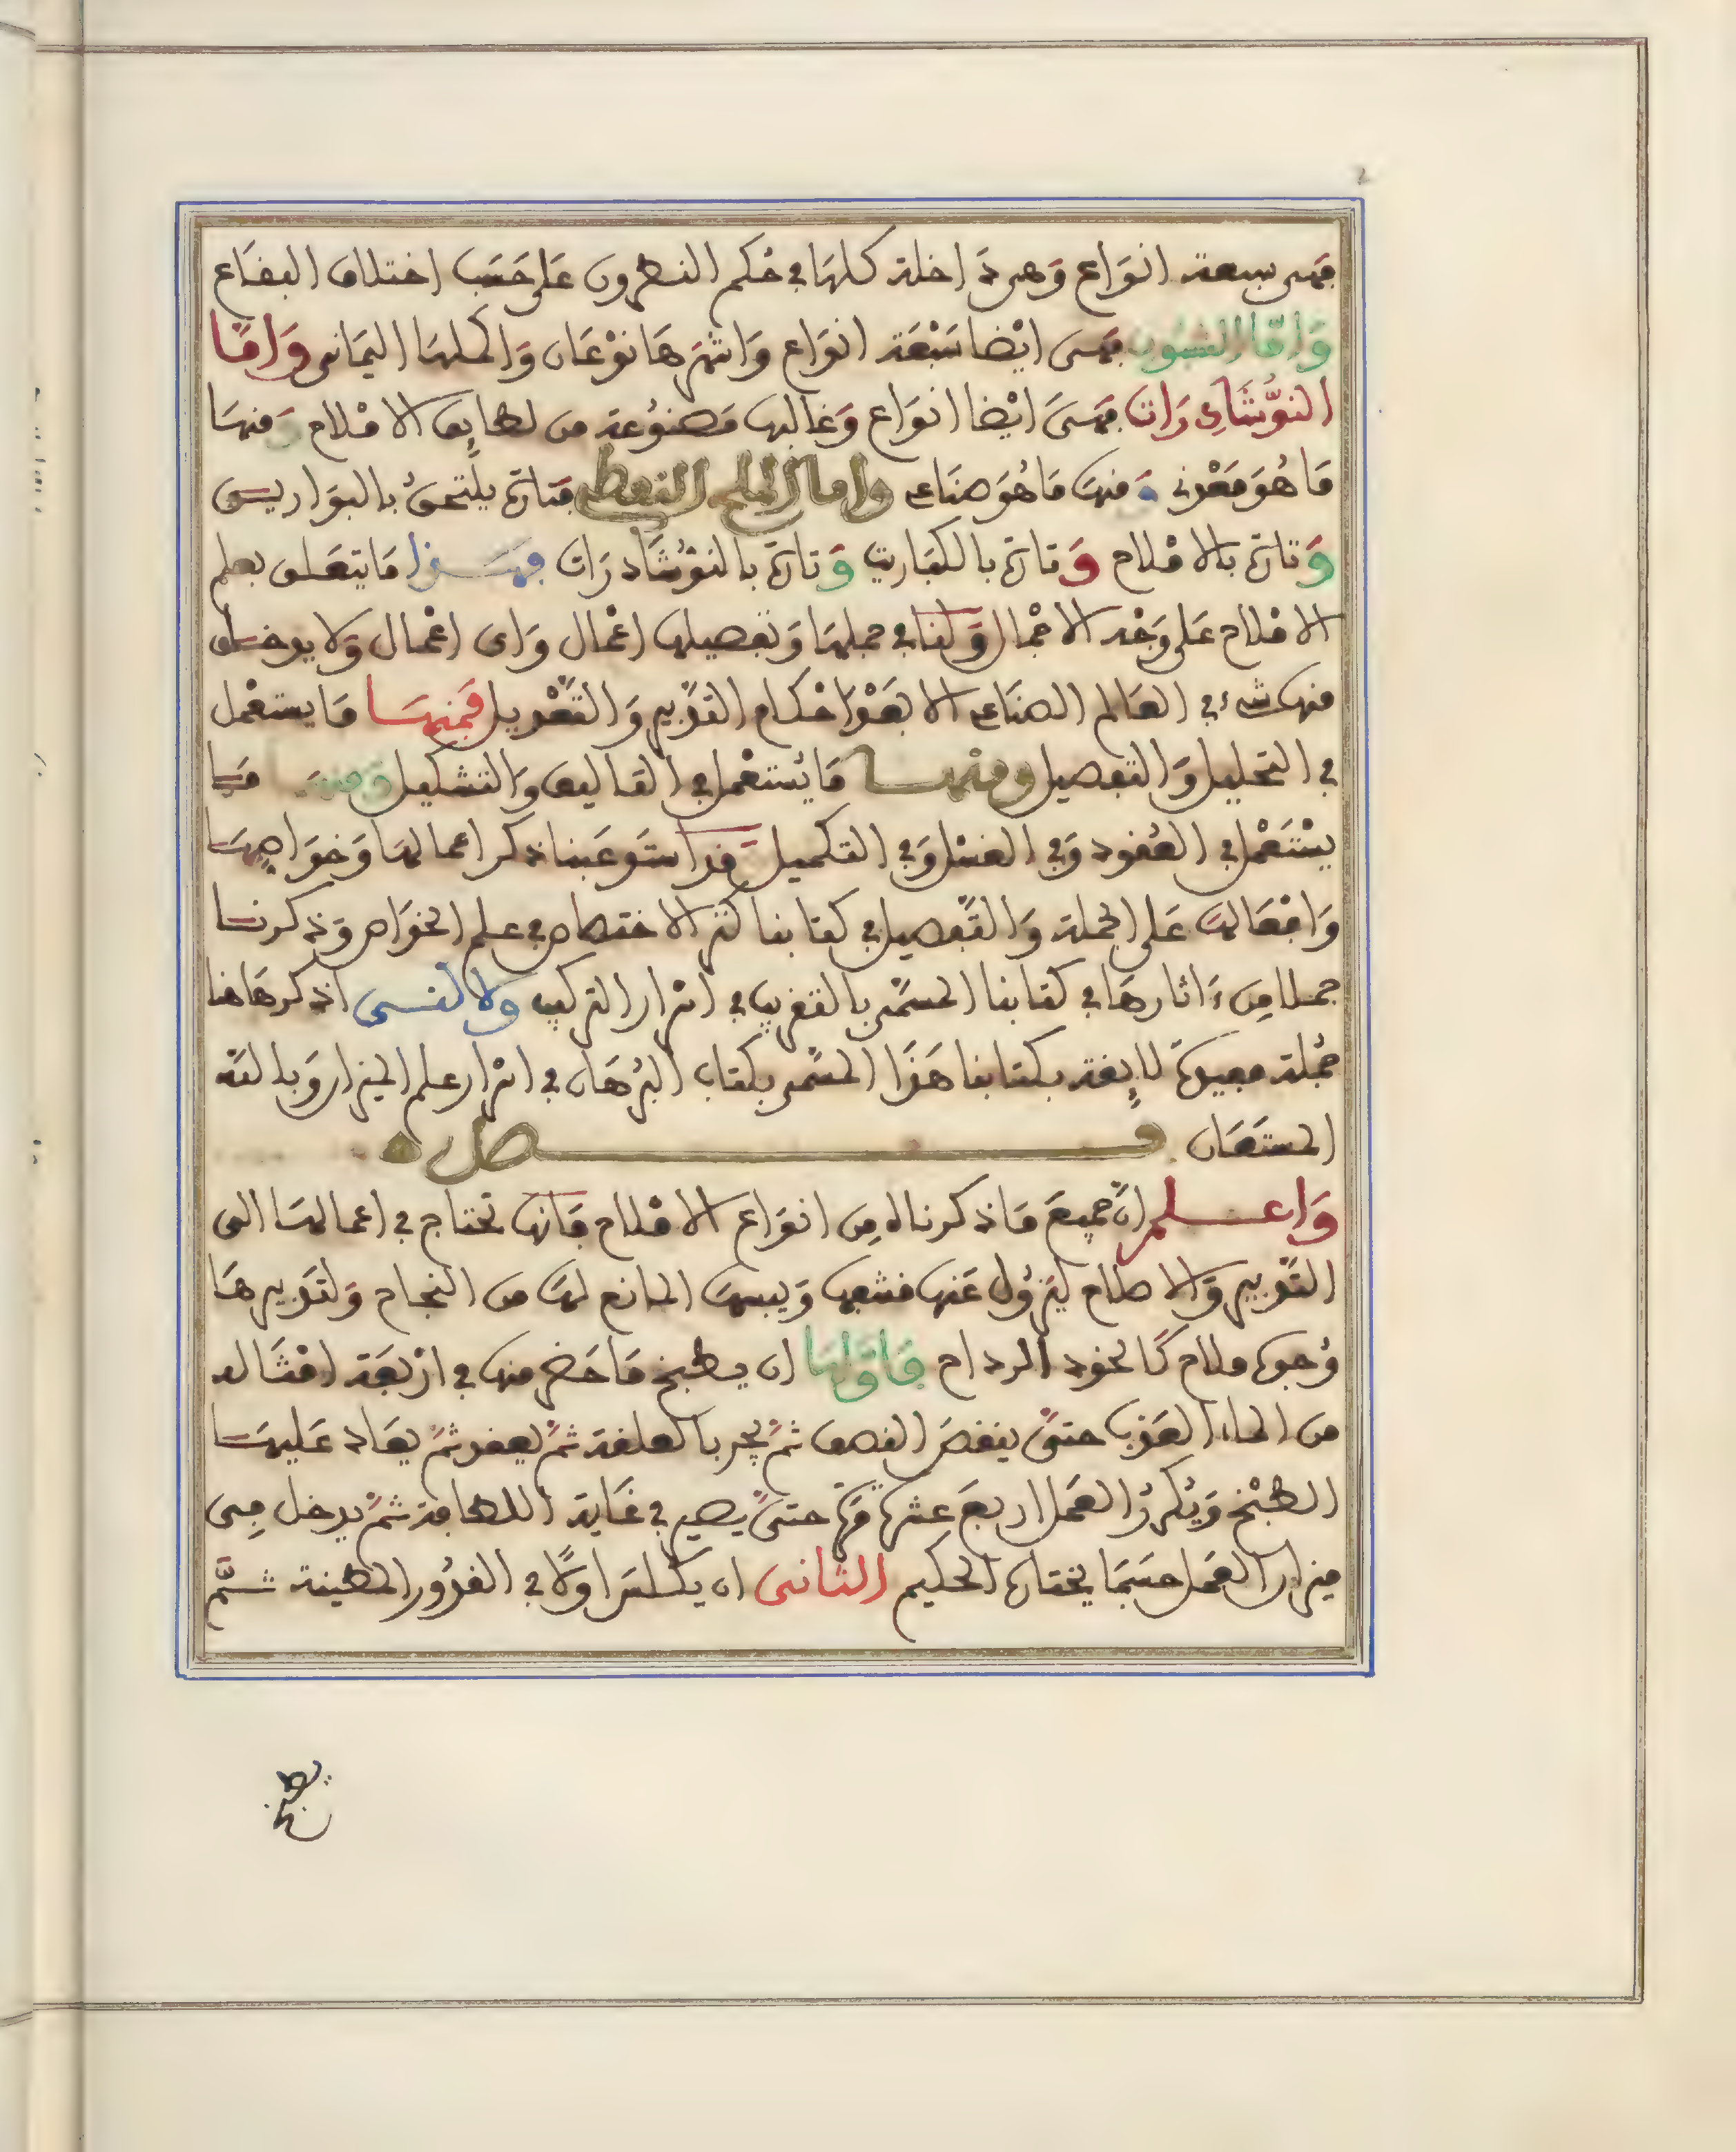 فهى سبعة انواع وهى داخلة كلها في حكم النطرون على حسب اختلاف البقاع
واما الشبوب فهى ايضا سبعة انواع واشهرها نوعان واكملها اليمانى واما
النوشادرات فهى ايضا انواع وغالبها مصنوعة من لطايف الاملاح ومنها
ما هو معدني ومنها ما هو صناعي واما الملح النفطي فتارة يلتحق بالبواريس
وتارة بالاملاح وتارة بالكباريت وتارة بالنوشادرات فهذا ما يتعلق بعلم
الاملاح على وجه الاجمال ولنا في جملها وتفصيلها اعمال واى اعمال ولا يدخل
منها شىء في العالم الصناعي الا بعد احكام التدبير والتعديل فمنها ما يستعمل
في التحليل والتفصيل ومنها ما يستعمل في التاليف والتشكيل ومنها ما
يستعمل في العقود وفي الغسل وفي التكميل قد استوعبنا ذكر اعمالها وخواصها
وافعالها على الجملة والتفصيل في كتابنا كنز الاختصاص في علم الخواص وذكرنا
جملا من ءاثارها في كتابنا المسمى بالتقريب في اسرار التركيب ولاكنى اذكر هاهنا
جملة مفيدة لايقة بكتابنا هذا المسمى بكتاب البرهان في اسرار علم الميزان وبالله
المستعان فصل
واعلم ان جميع ما ذكرناه من انواع الاملاح فانها تحتاج في اعمالها الى
التدبير والاصلاح ليزول عنها قشفها ويبسها المانع لها من النجاح ولتدبيرها
وجوه ملاح كالخود الرداح فاولها ان يطبخ ما حضر منها في اربعة امثاله
من الماء العذب حتى ينقص النصف ثم يجر بالعلقة ثم يعقد ثم يعاد عليها
الطبخ ويكرر العمل اربع عشرة مرة حتى يصير في غاية اللطافة ثم يدخل فى
ميزان العمل حسبما يختاره الحكيم الثانى ان يكلس اولا في القدور المطينة ثم
يطبخ